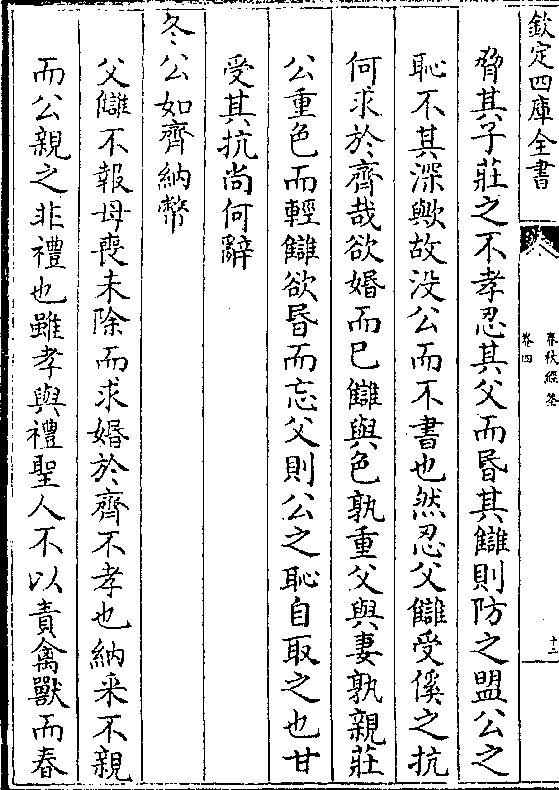 欽定四庫全書
春秋經筌
卷四
十二
脅其子莊之不孝忍其父而昬其讎則防之盟公之
恥不其深歟故没公而不書也然忍父讎受傒之抗
何求於齊哉欲婚而已讎與色孰重父與妻孰親莊
公重色而輕讎欲昬而忘父則公之恥自取之也甘
受其抗尚何辭
冬公如齊納幣
父讎不報母喪未除而求婚於齊不孝也納采不親
而公親之非禮也雖孝與禮聖人不以責禽獸而春